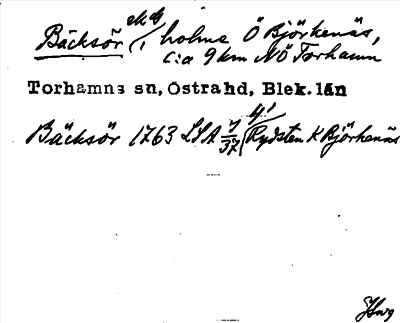 Bäcksör, holme Ö Björkenäs,
c:a 9 km NÖ Torhamn
Torhamns sn, Östrahd, Blek. län
Bäcksör 1763 LSA 7/37 Rydsten K Björkenäs